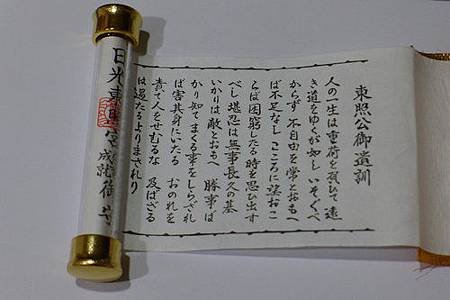 東照公御遺訓
人の一生は重荷を負ひて遠
き道をゆくが如し いそぐべ
からず 不自由を常とおもへ
ば不足なし こころに望おこ
らば困窮したる時を思ひ出す
べし 堪忍は無事長久の基
いかりは敵とおもへ 勝事ば
かり知てまくる事をしらざれ
ば害其身にいたる おのれを
責て人をせむるな 及ばざる
は過たるよりまされり
日光東照宮
成就御守